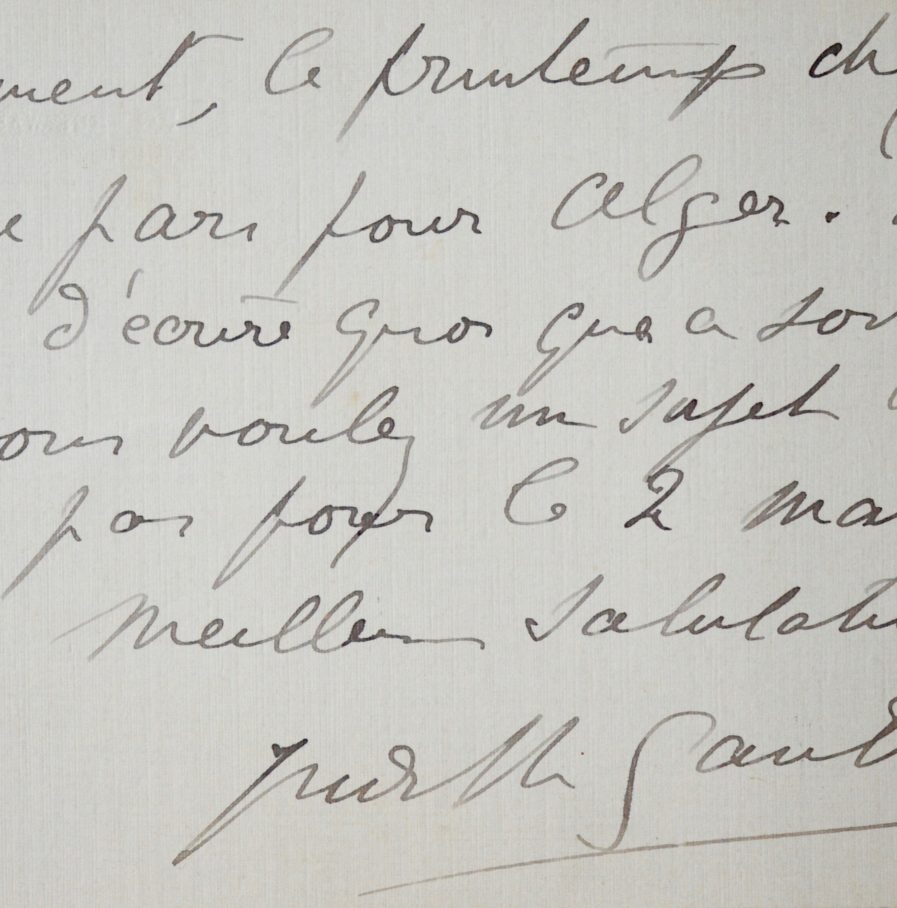 ment, le printemp ch
e pars pour Alger.
d'écrire que a sou
ous voulez un sujet
pas pour le 2 ma
Meilleurs salutati
Judith Gaut